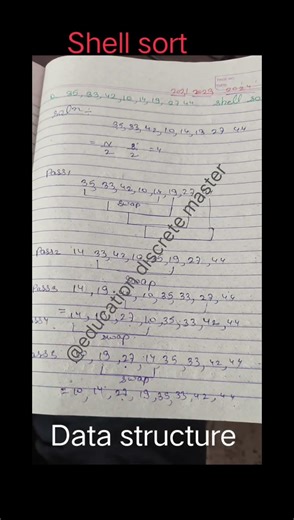 Shell sort
35, 33, 42, 10, 14, 19, 27 44 shell so
35, 33, 42, 10, 14, 19 27 44
= N/2 8/2 = 4
Pass1
35, 33, 42, 10, 14, 19, 27
swap
Pass2 14 33, 42, 10, 35, 19, 27, 44
swap
14, 19, 10, 35, 33, 27, 44
= 14, 19, 27, 10, 35, 33, 42, 44
swap
10, 19, 27, 14 35, 33, 42, 44
swap
= 10, 14, 27, 19, 35, 33, 42, 44
@education discrete master
Data structure